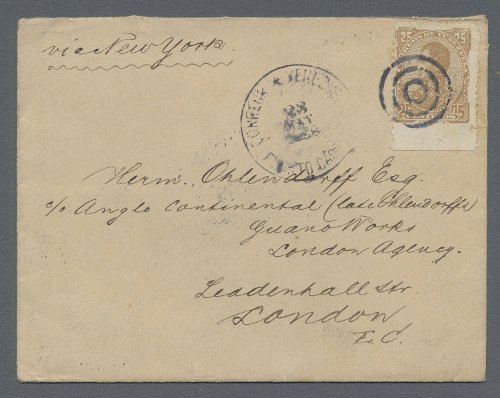 via New York.
25 25
CORREOS VENEZUELA
23
MAY
Herm. Ohlendorff Esq.
c/o Anglo Continental (late Ohlendorff's)
Guano Works
London Agency.
Leadenhall Str.
London
E.C.